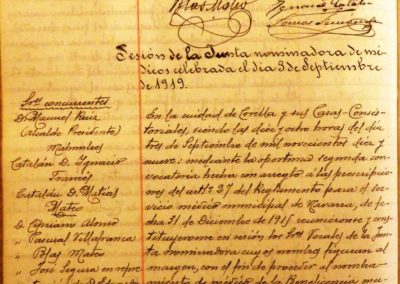 Blas Mateo
Ignacio Catalán
Tomás
Sesión de la Junta nominadora de mé
dicos celebrada el día 3 de Septiembre
de 1919.
Sres concurrentes
D. Manuel Ruiz
(Alcalde Presidente)
Catalán D. Ignacio
Francés
Catalán D. Matías
Mateo
D. Cipriano Alonso
" Pascual Villafranca
" Blas Mateo
" José Segura en repre
En la ciudad de Corella y sus Casas-Consis-
toriales, siendo las diez y ocho horas del día
tres de Septiembre de mil novecientos diez y
nueve: mediante la oportuna segunda con-
vocatoria hecha con arreglo á las prescripcio-
nes del artº 27 del Reglamento para el ser-
vicio médico municipal de Navarra, de
fecha 31 de Diciembre de 1915 reuniéronse y cons-
tituyéronse en sesión los Sres Vocales de la Jun-
ta nominadora cuyos nombres figuran al
margen, con el fin de proceder al nombra-
miento de médico de la Beneficencia mu-